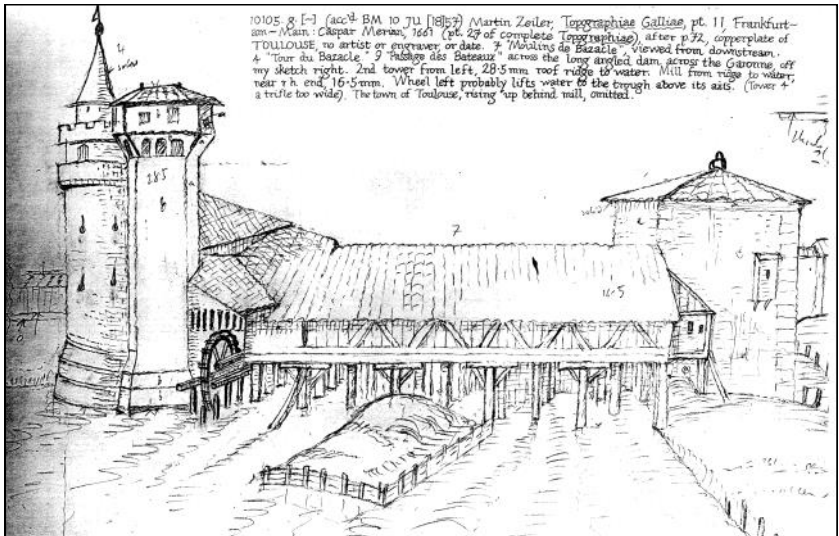 10105. g. [-] (acc'd. BM 10 JU [18]57) Martin Zeiler, Topographiae Galliae, pt. 11, Frankfurt-
am-Main: Caspar Merian, 1661 (pt. 27 of complete Topographiae), after p.72, copperplate of
TOULOUSE, no artist or engraver, or date. 7 "Moulins de Bazacle", viewed from downstream.
4 "Tour du Bazacle" 9 "Passage des Bateaux" across the long angled dam, across the Garonne, off
my sketch right. 2nd tower from left, 28·5 mm roof ridge to water. Mill from ridge to water,
near r h end, 16·5 mm. Wheel left probably lifts water to the trough above its axis. (Tower 4
a trifle too wide). The town of Toulouse, rising up behind mill, omitted.
4
28.5
7
16.5